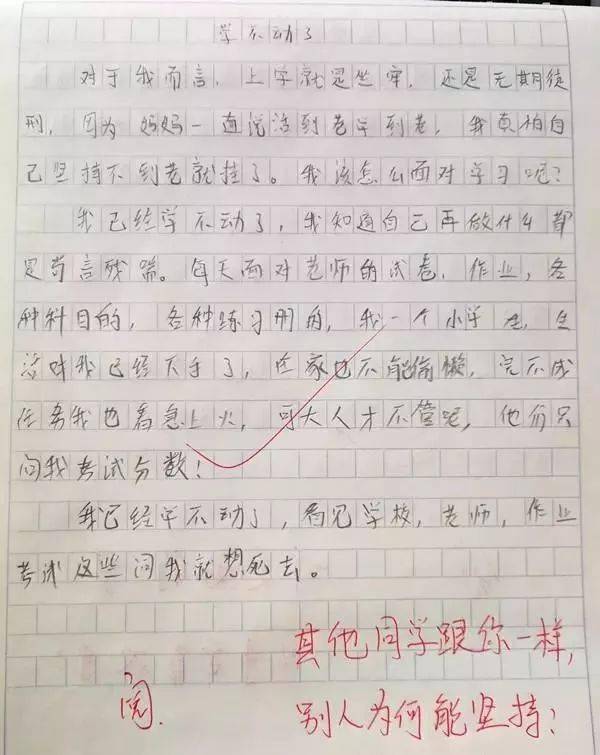 学不动了
对于我而言,上学就是坐牢,还是无期徒
刑,因为妈妈一直说活到老学到老,我真怕自
己坚持不到老就挂了。我该怎么面对学习呢?
我已经学不动了,我知道自己再做什么都
是苟言残喘。每天面对老师的试卷,作业,各
种科目的,各种练习册的,我一个小学生,生
活对我已经下手了,在家也不能偷懒,完不成
任务我也着急上火,可大人才不管呢,他们只
问我考试分数!
我已经学不动了,看见学校,老师,作业
考试这些词我就想死去。
其他同学跟你一样,
别人为何能坚持?
阅.